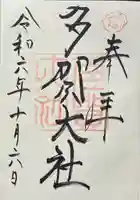 奉拝
多賀大社
令和六年十月六日